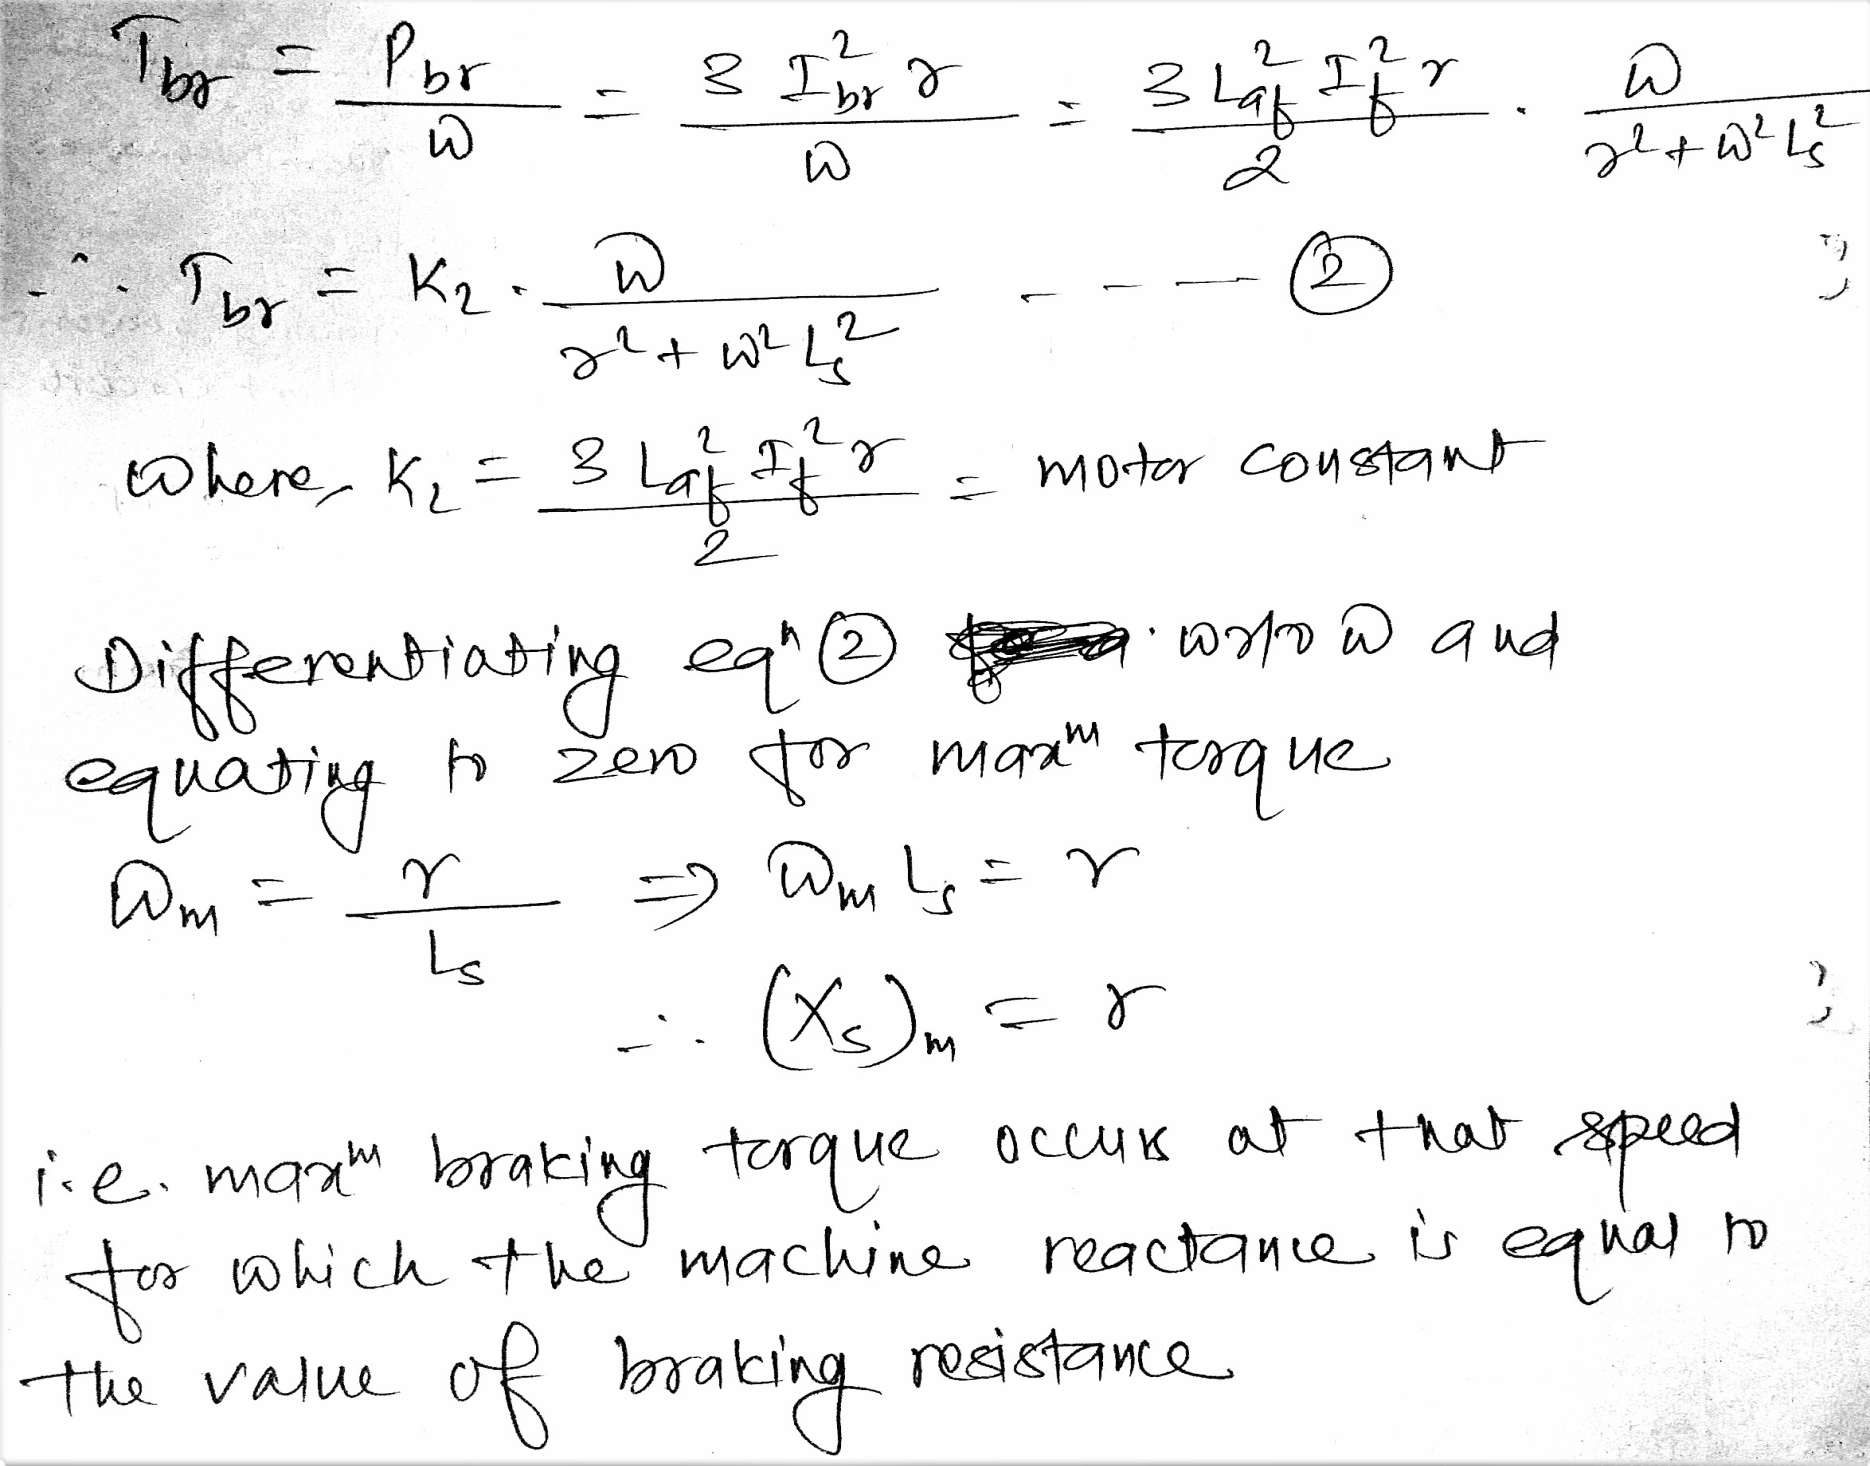 T_br = P_br / ω = 3 I_br² r / ω = 3 L_af² I_f² r / 2 · ω / (r² + ω² L_s²)
∴ T_br = K₂ · ω / (r² + ω² L_s²) - - - - ②
where, K₂ = 3 L_af² I_f² r / 2 = motor constant
Differentiating eqⁿ ② w.r.to ω and
equating to zero for maxᵐ torque
ω_m = r / L_s ⇒ ω_m L_s = r
∴ (X_s)_m = r
i.e. maxᵐ braking torque occurs at that speed
for which the machine reactance is equal to
the value of braking resistance